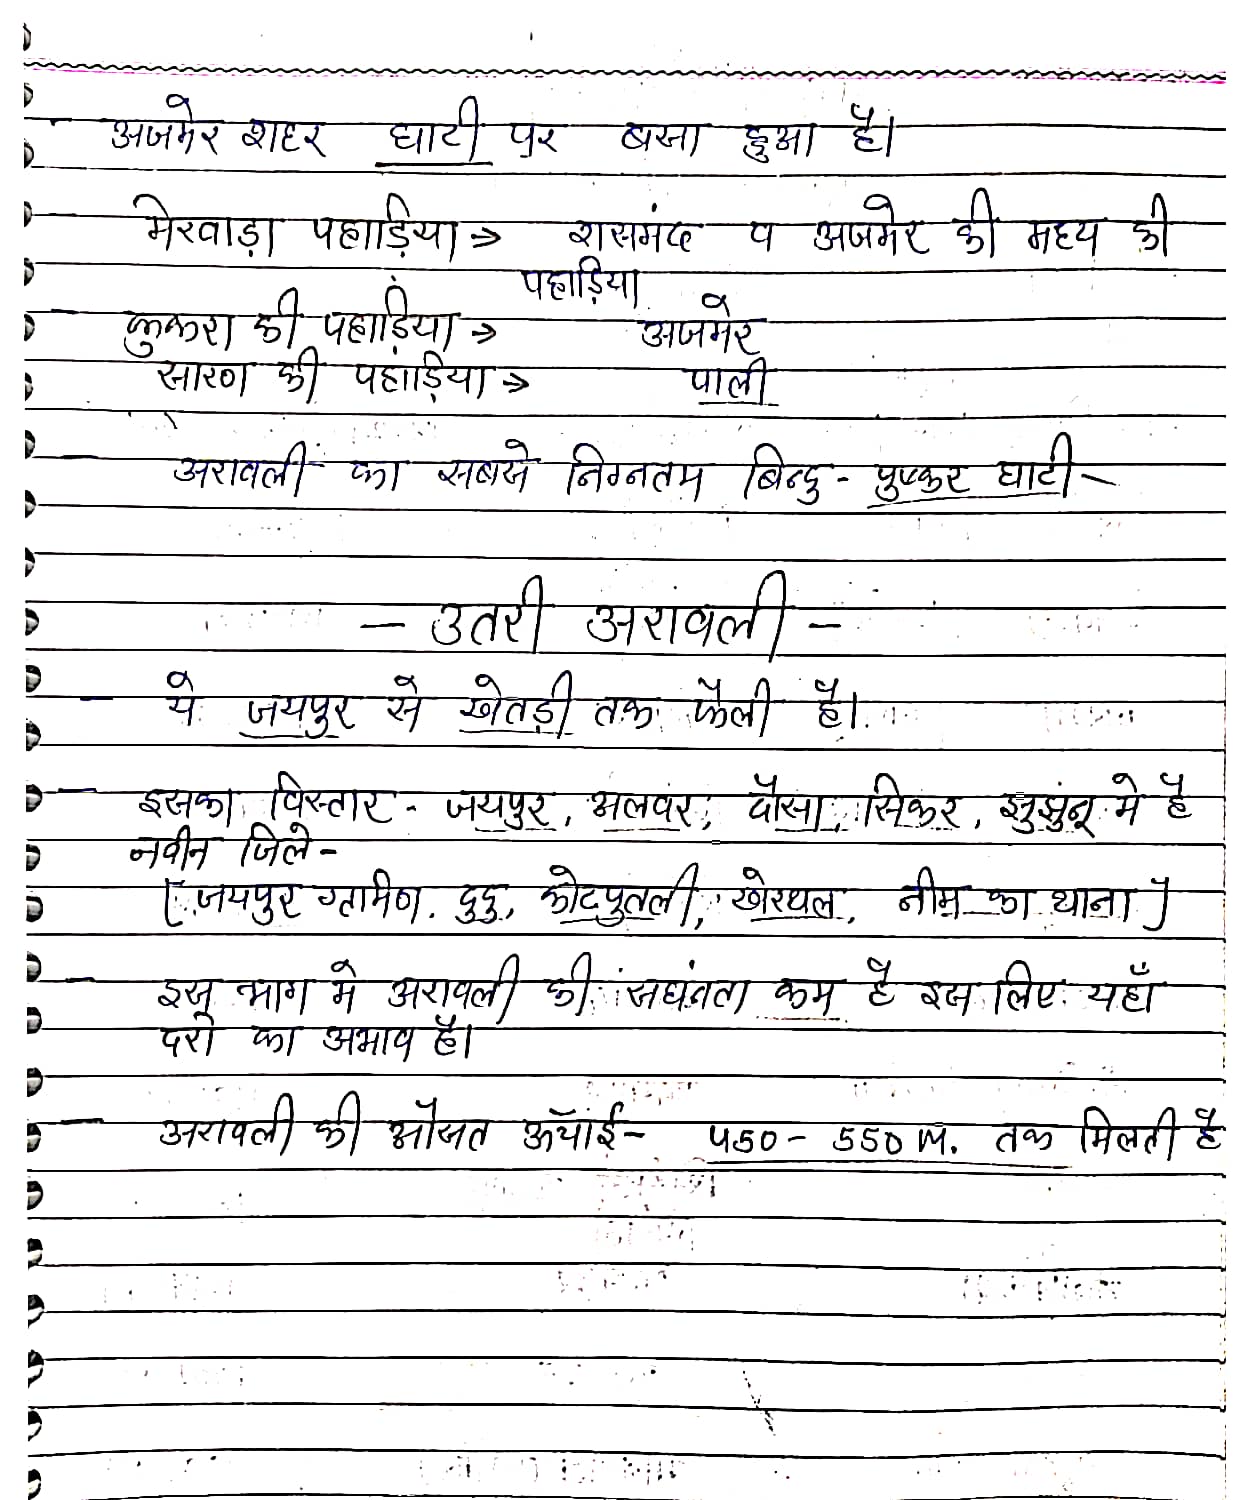 - अजमेर शहर घाटी पर बसा हुआ है।
मेरवाड़ा पहाड़िया ⇒ राजसमंद व अजमेर की मध्य की
पहाड़िया
कुकरा की पहाड़िया ⇒ अजमेर
सारण की पहाड़िया ⇒ पाली
- अरावली का सबसे निम्नतम बिन्दु - पुष्कर घाटी -
- उतरी अरावली -
- ये जयपुर से खेतड़ी तक फैली है।
- इसका विस्तार - जयपुर, अलवर, दौसा, सिकर, झुझुंनू मे है
नवीन जिले -
[जयपुर ग्रामिण, दुदु, कोटपुतली, खेरथल, नीम का थाना]
- इस भाग मे अरावली की सघंनता कम है इस लिए यहाँ
दर्रो का अभाव है।
- अरावली की औसत ऊँचाई - 450 - 550 M. तक मिलती है